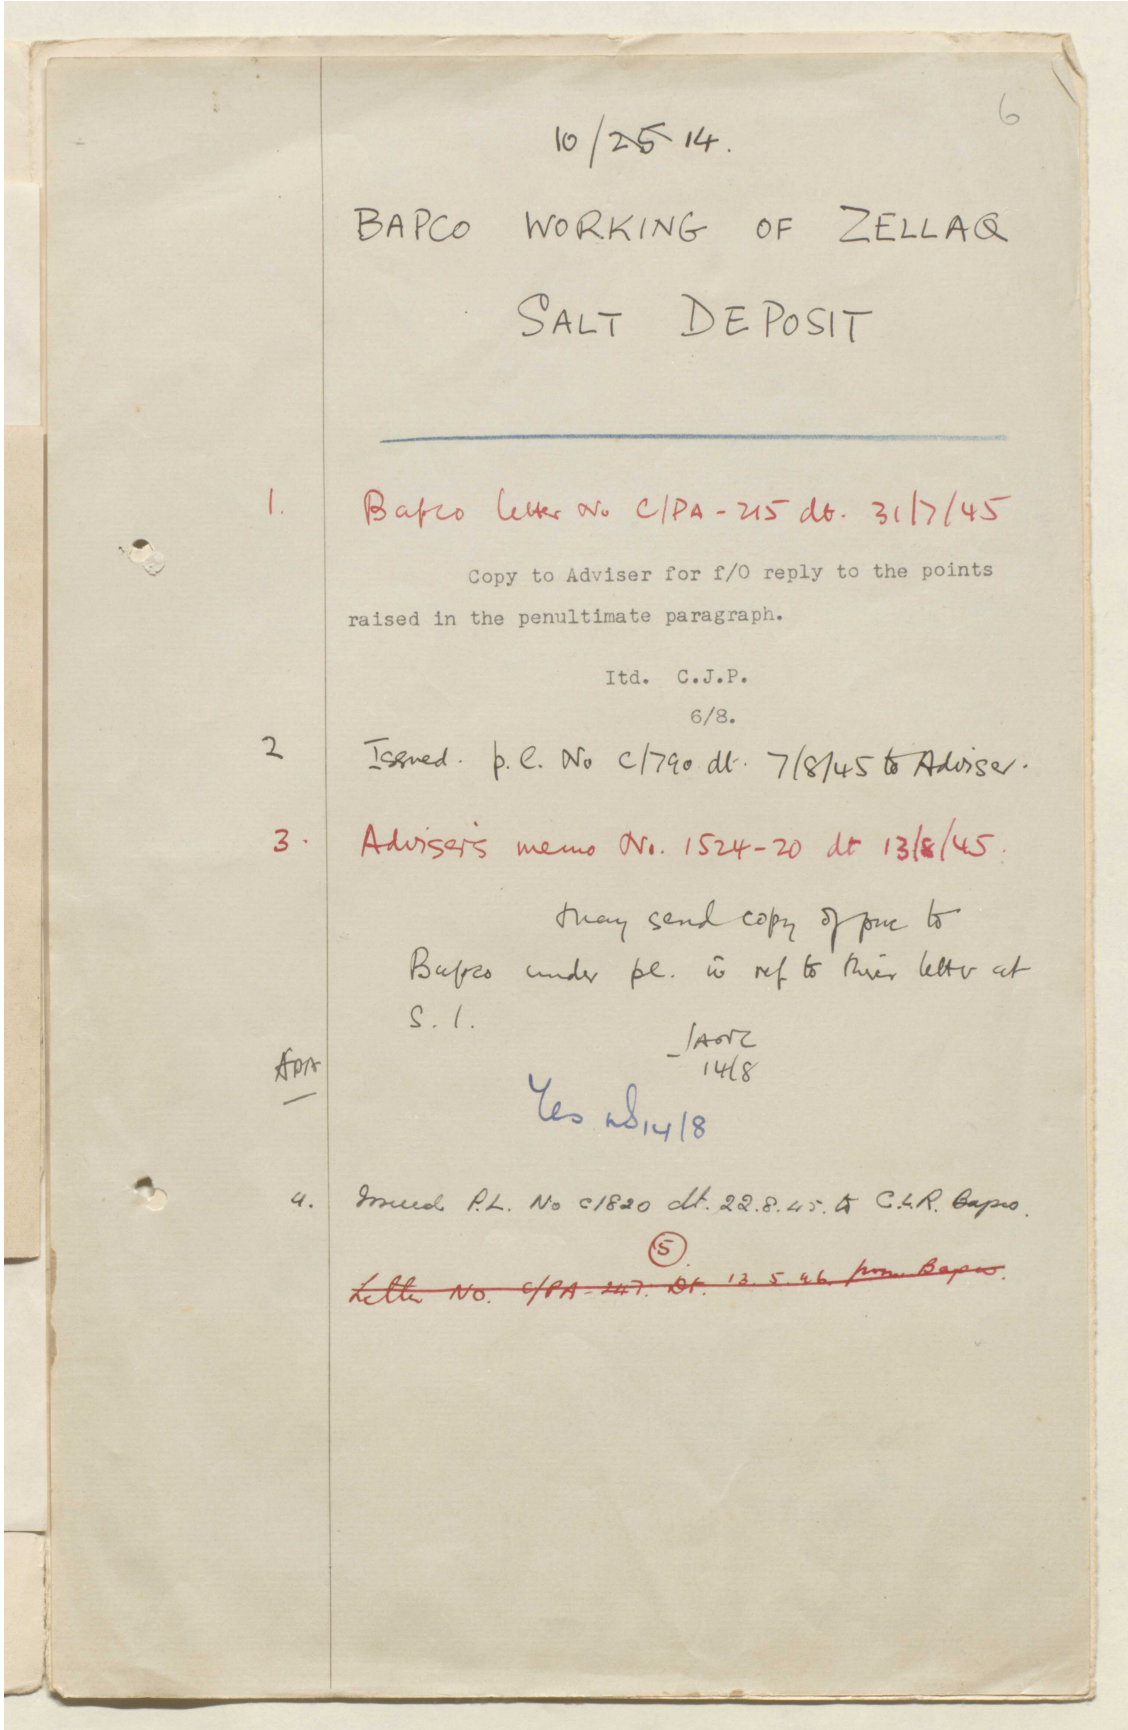 6
10/25 14.
BAPCO WORKING OF ZELLAQ
SALT DEPOSIT
1. Bapco letter No C/PA-215 dt. 31/7/45
Copy to Adviser for f/O reply to the points
raised in the penultimate paragraph.
Itd. C.J.P.
6/8.
2 Issued. p.l. No C/790 dt. 7/8/45 to Adviser.
3. Adviser's memo No. 1524-20 dt 13/8/45.
May send copy of puc to
Bapco under pl. in ref to their letter at
S. 1.
14/8
APA
Yes 14/8
4. Issued P.L. No C/820 dt. 22.8.45. to C.L.R. Bapco.
5
Letter No. C/PA-247. Dt. 13.5.46 from Bapco.